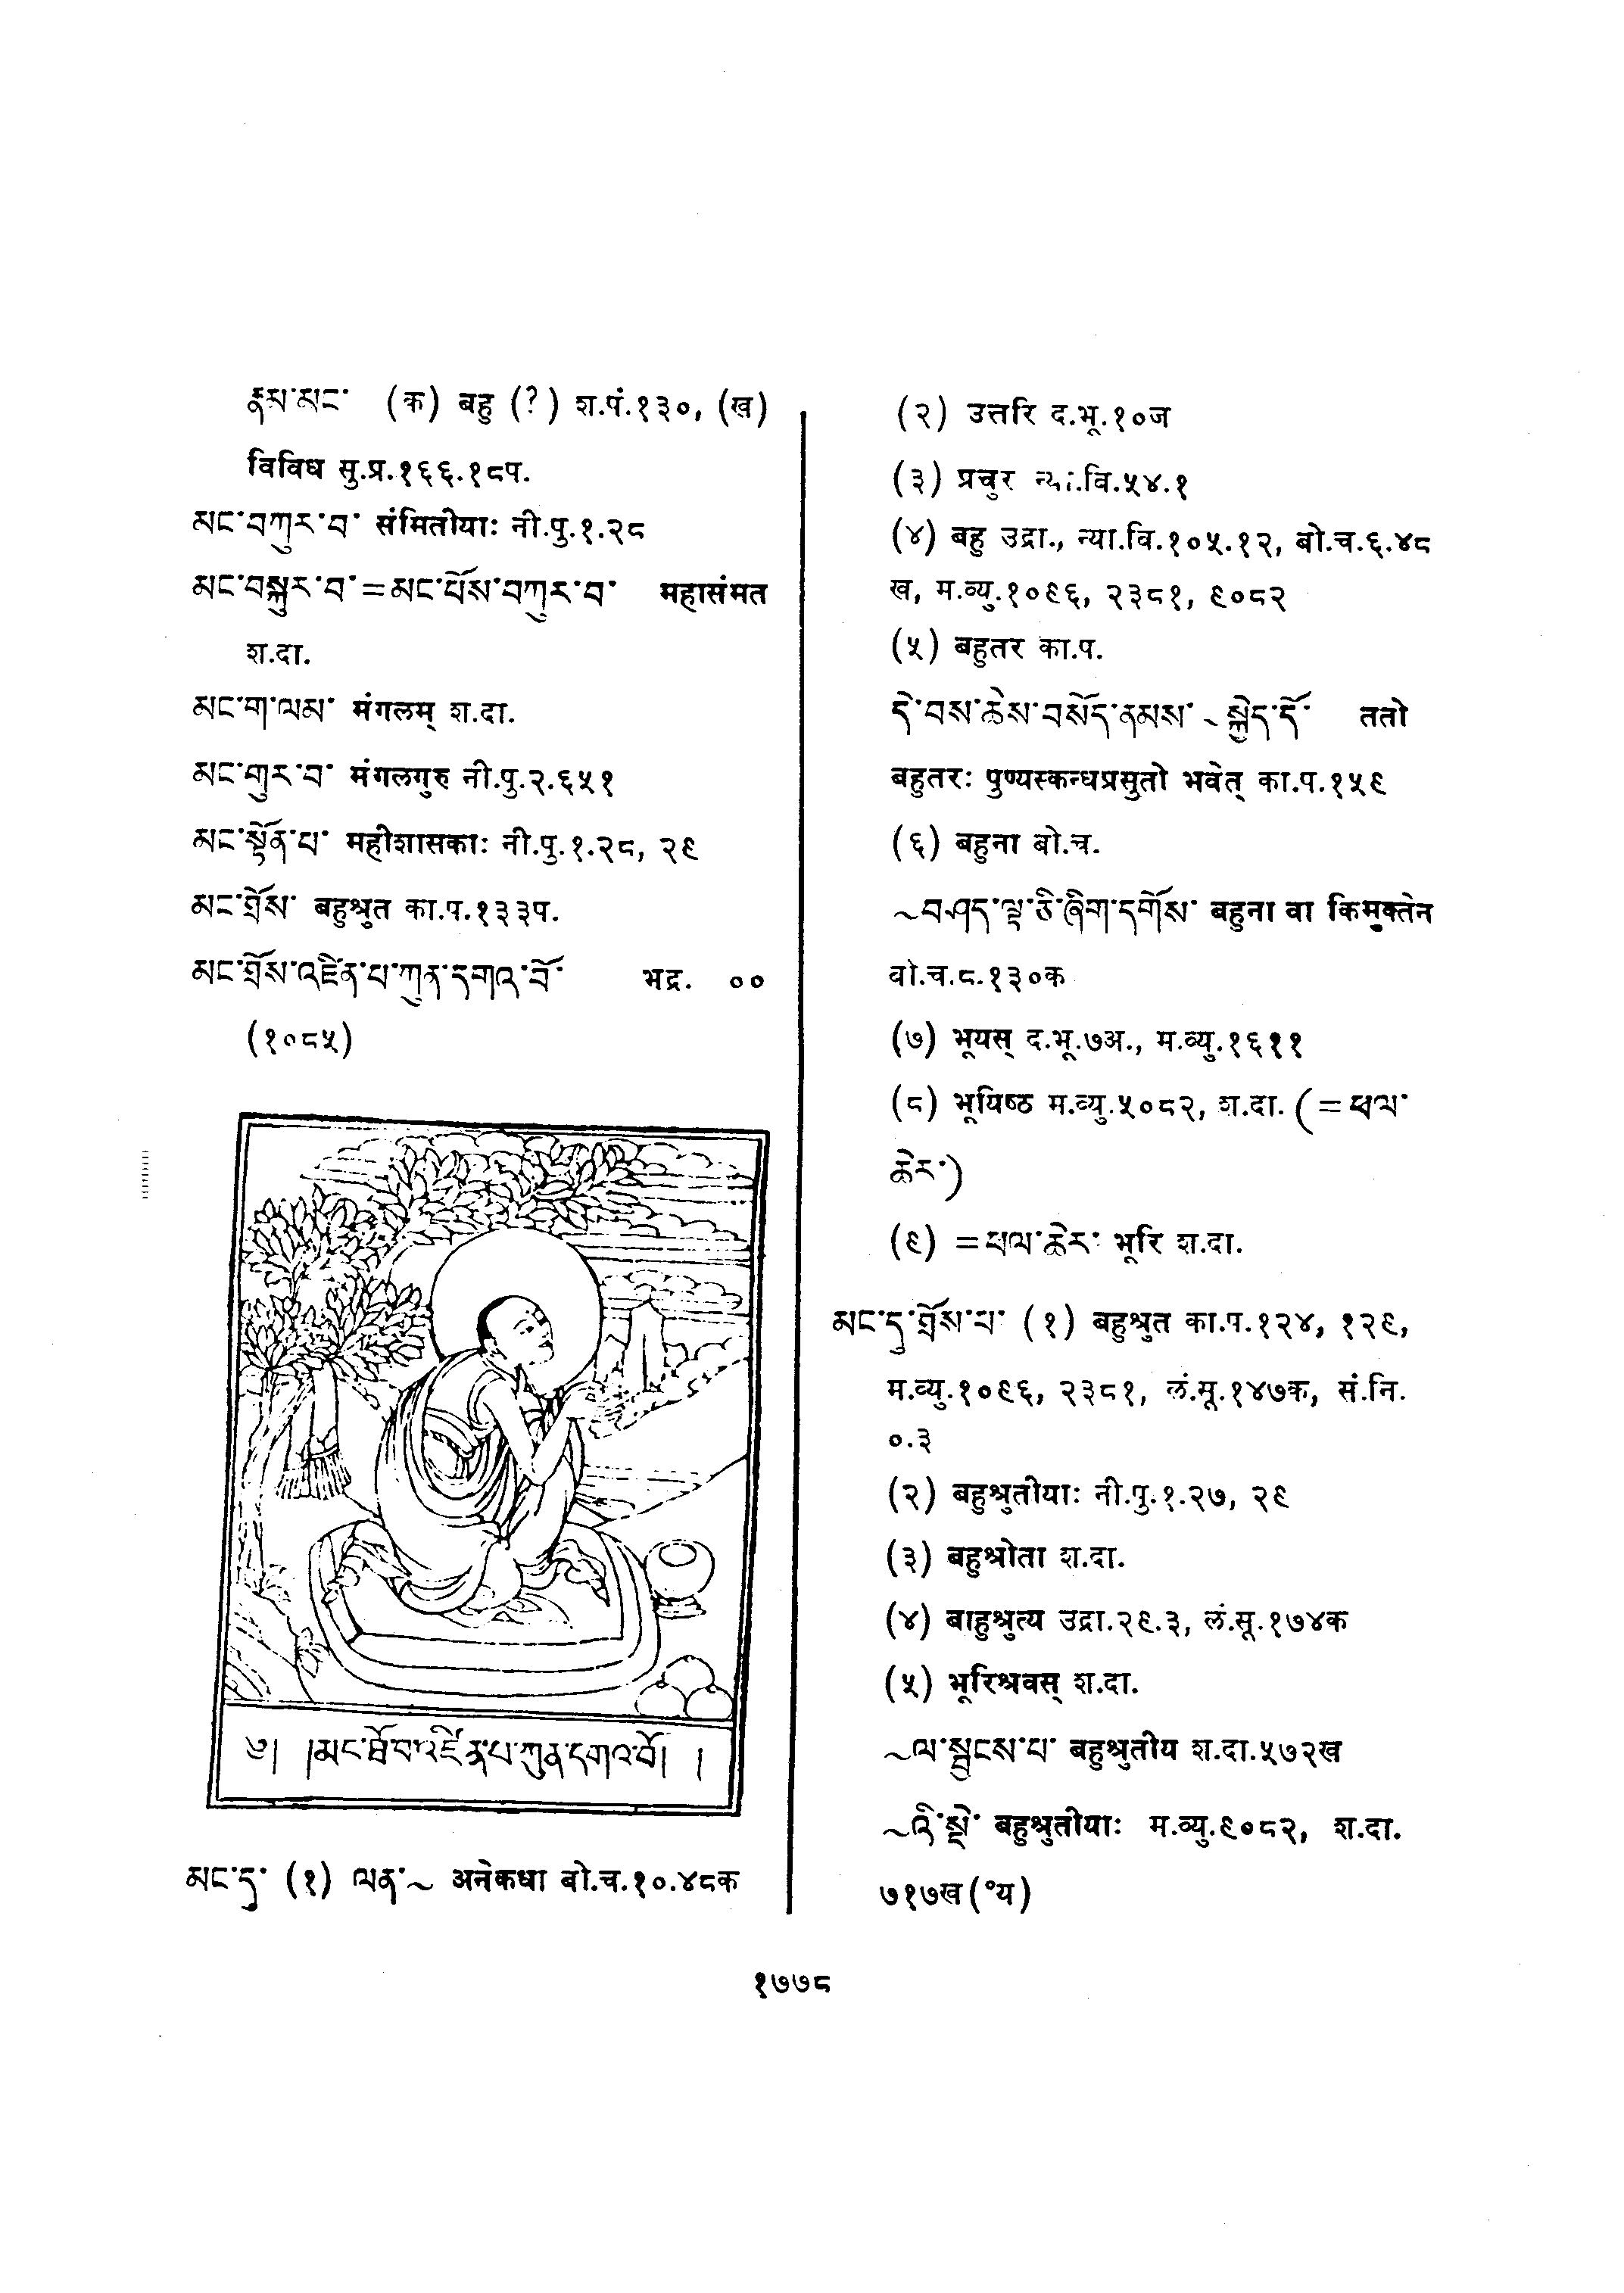 རྣམ་མང་ (क) बहु (?) श.पं.१३०, (ख)
विविध सु.प्र.१६६.१८प.
མང་བཀུར་བ་ संमितीयाः नी.पु.१.२८
མང་བསྐུར་བ་=མང་པོས་བཀུར་བ་ महासंमत
श.दा.
མང་ག་ལམ་ मंगलम् श.दा.
མང་གུར་བ་ मंगलगुरु नी.पु.२.६५१
མང་སྟོན་པ་ महीशासकाः नी.पु.१.२८, २९
མང་ཐོས་ बहुश्रुत का.प.१३३प.
མང་ཐོས་འཛིན་པ་ཀུན་དགའ་བོ་ भद्र. ००
(१०८५)
༄། །མང་ཐོབ་འཛིན་པ་ཀུན་དགའ་བོ། །
མང་དུ་ (१) ལན་~ अनेकधा बो.च.१०.४८क
(२) उत्तरि द.भू.१०ज
(३) प्रचुर न्या.वि.५४.१
(४) बहु उद्रा., न्या.वि.१०५.१२, बो.च.६.४८
ख, म.व्यु.१०९६, २३८१, ९०८२
(५) बहुतर का.प.
དེ་བས་ཆེས་བསོད་ནམས་~སྐྱེད་དོ་ ततो
बहुतरः पुण्यस्कन्धप्रसुतो भवेत् का.प.१५९
(६) बहुना बो.च.
~བཤད་ལྟ་ཅི་ཞིག་དགོས་ बहुना वा किमुक्तेन
वो.च.८.१३०क
(७) भूयस् द.भू.७अ., म.व्यु.१६११
(८) भूयिष्ठ म.व्यु.५०८२, श.दा. (=ཕལ་
ཆེར་)
(९) =ཕལ་ཆེར་ भूरि श.दा.
མང་དུ་ཐོས་པ་ (१) बहुश्रुत का.प.१२४, १२९,
म.व्यु.१०९६, २३८१, लं.मू.१४७क, सं.नि.
०.३
(२) बहुश्रुतीयाः नी.पु.१.२७, २९
(३) बहुश्रोता श.दा.
(४) बाहुश्रुत्य उद्रा.२९.३, लं.सू.१७४क
(५) भूरिश्रवस् श.दा.
~ལ་སྦྱངས་པ་ बहुश्रुतीय श.दा.५७२ख
~འི་སྡེ་ बहुश्रुतीयाः म.व्यु.९०८२, श.दा.
७१७ख(°य)
१७७८